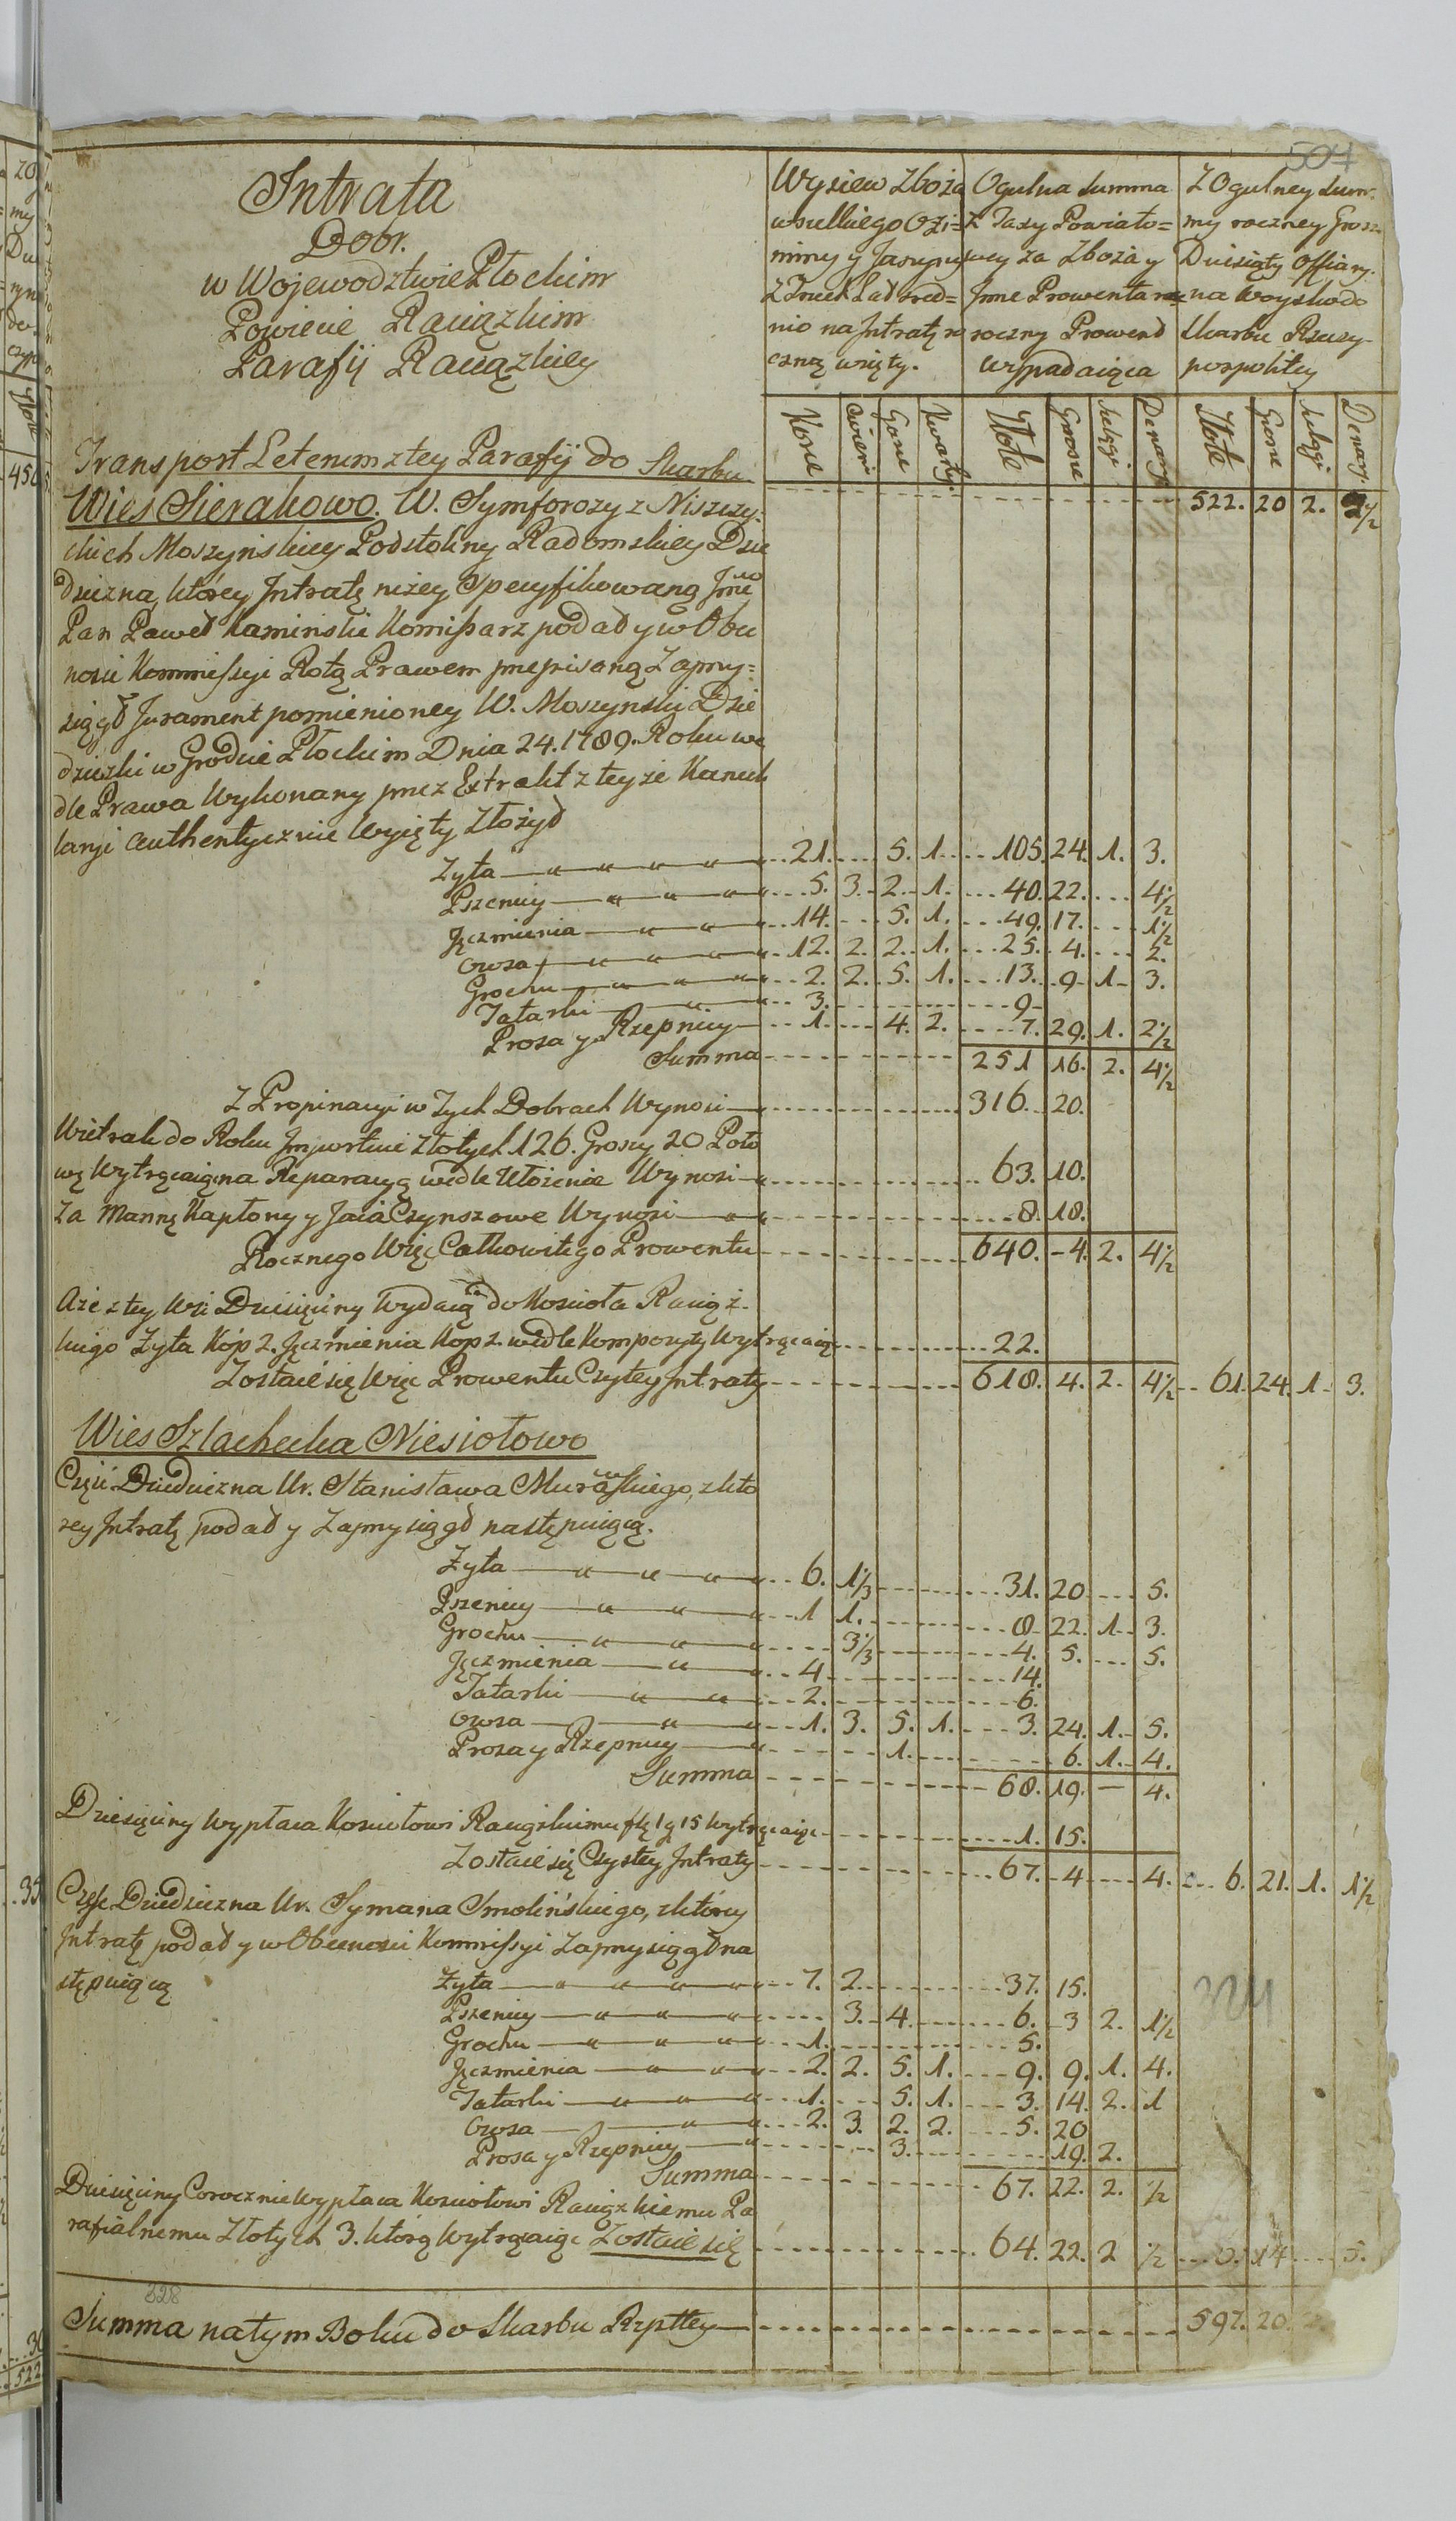 504
Intrata
Dobr.
w Wojewodztwie Płockim
Powiecie Raciązkim
Parafij Raciązkiey
Wysiew Zboża
wszelkiego Ozi=
miny y Jarzyny
z Trzech Lat śred=
nio na Intratę ro
czną wzięty.
Ogulna Summa
z Taxy Powiato=
wey za Zboża y
Jnne Prowenta na
roczny Prowend
wypadaiąca
Z Ogulney Sum-
my roczney Grosz
Dziesiąty Offiary
na Woysko do
Skarbu Rzeczy-
pospolitey
Korce Cwierci Garce Kwarty. Złote Grosze Szelągi Denary Złote Grosze Szelągi Denary
Transport Leteris z tey Parafij do Skarbu 522. 20 2. 2½
Wies Sierakowo. W. Symforozy z Niszczy-
ckich Moszynskiey Podstoliny Radomskiey Dzie
dziczna, którey Intratę niżey Specyfikowaną Jmć
Pan Paweł Kaminski Komissarz podał y w Obe
cnosci Kommissyi Rotą Prawem przepisaną Zaprzy=
siągł Jurament pomienioney W. Moszynski Dzie
dziczki w Grodzie Płockim Dnia 24. 1789. Roku we
dle Prawa Wykonany przez Extrakt z teyże Kancel
laryi authentycznie Wyięty Złożył
Zyta 21. 5. 1. 105. 24. 1. 3.
Pszenicy 5. 3. 2. 1. 40. 22. 4½
Jęczmienia 14. 5. 1. 49. 17. 1½
Owsa 12. 2. 2. 1. 25. 4. 2.
Grochu 2. 2. 5. 1. 13. 9 1. 3.
Tatarki 3. 9
Prosa y Rzepnicy 1. 4. 2. 7. 29. 1. 2½
Summa 251 16. 2. 4½
Z Propinacyi w Tych Dobrach Wynosi 316. 20.
Wietrak do Roku Importuie Złotych 126. Groszy 20 Poło
wę Wytrącaiąc na Reparacyą wedle Ułożenia Wynosi 63. 10.
Za Mannę Kapłony y Jaia Czynszowe Wynosi 8. 18.
Rocznego Więc Całkowitego Prowentu 640. 4. 2. 4½
Aże z tey Wsi Dziesięciny Wydaią do Koscioła Raciąż-
kiego Żyta Kóp 2. Jęczmienia Kop 2. wedle Kompozyty Wytrącaiąc 22.
Zostaie się Więc Prowentu Czystey Intraty 618. 4. 2. 4½ 61. 24. 1. 3.
Wies Szlachecka Niesiołowo
Częsć Dziedziczna Ur. Stanisława Murawskiego, z kto
rey Intratę podał y Zaprzysiągł następuiącą.
Żyta 6. 1⅓ 31. 20 5.
Pszenicy 1 1. 8 22. 1. 3.
Grochu 3⅓ 4. 5. 5.
Jęczmienia 4 14.
Tatarki 2. 6.
Owsa 1. 3. 5. 1. 3. 24. 1. 5.
Prosa y Rzepnicy 1. 6. 1. 4.
Summa 68. 19. — 4.
Dziesięciny wypłaca Kosciołowi Raciązkiemu 1 g 15 Wytrącaiąc 1. 15.
Zostaie się Czystey Intraty 67. 4 4. 6. 21. 1. 1½
Częsć Dziedziczna Ur. Symana Smolińskiego, z którey
Intratę podał y w Obecnosci Kommissyi Zaprzysiągł na
stępuiącą
Żyta 7. 2. 37. 15.
Pszenicy 3. 4. 6. 3 2. 1½
Grochu 1. 5.
Jęczmienia 2. 2. 5. 1. 9. 9. 1. 4.
Tatarki 1. 5. 1. 3. 14. 2. 1
Owsa 2. 3. 2. 2. 5. 20
Prosa y Rzepnicy 3. 19. 2.
Summa 67. 22. 2. ½
Dziesięciny Corocznie wypłaca Kosciołowi Raciązkiemu Pa
rafialnemu Złotych 3. którą Wytrącaiąc Zostaie się 64. 22. 2 ½ 14 5.
328
Summa na tym Boku do Skarbu Rzpltey 597. 20.
324